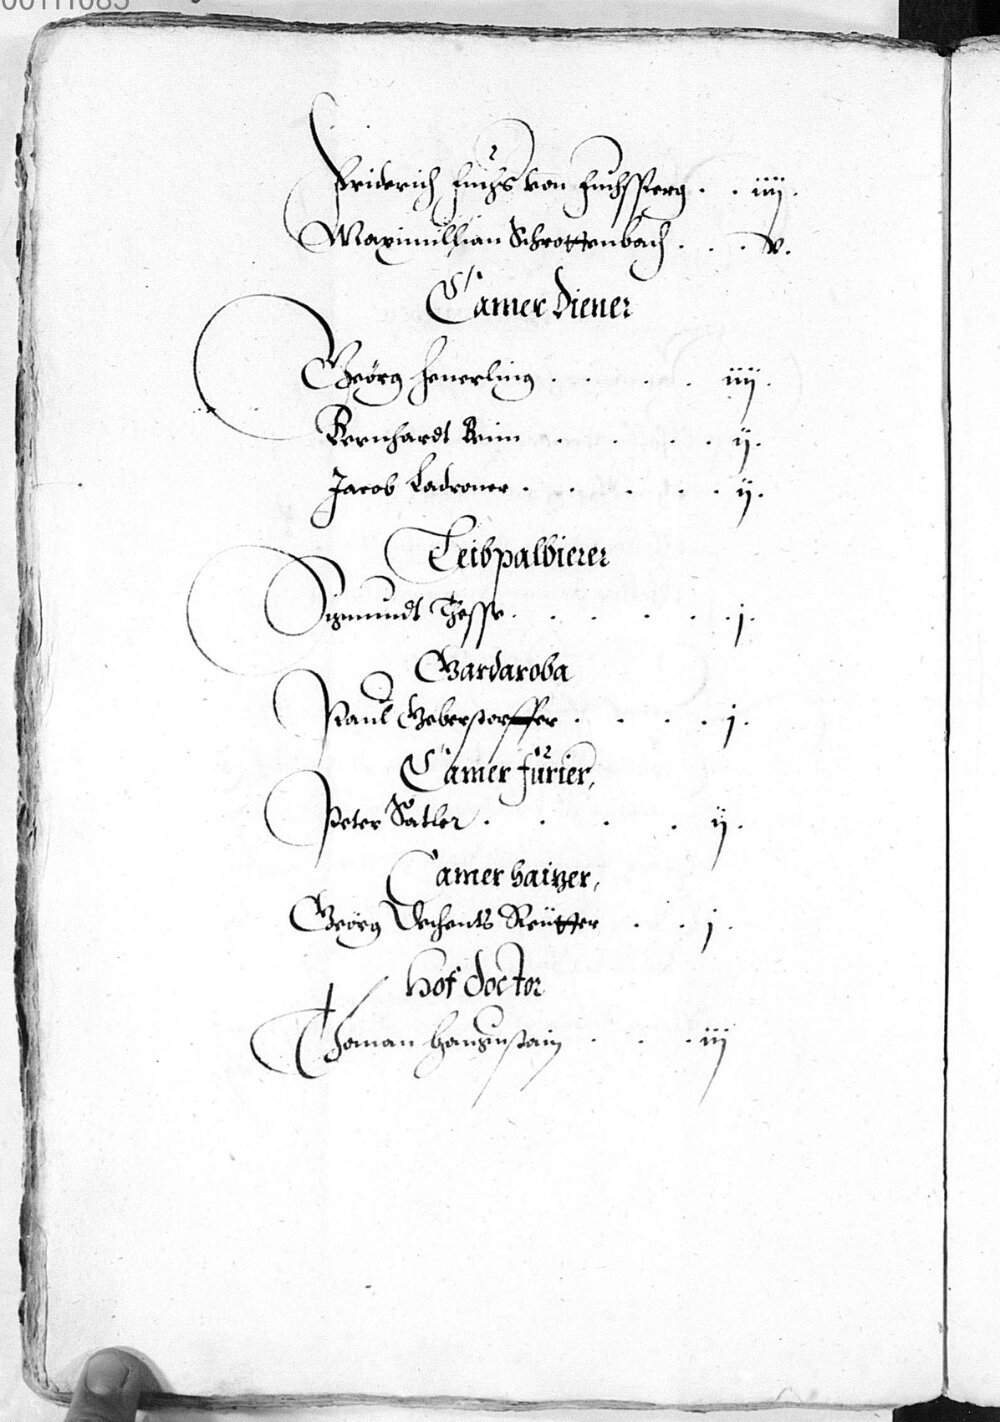 00111085
Friderich Fuchs von Fuchsperg . . iiij.
Maximillian Schrottenbach . . . v.
Camer Diener
Geörg Heuerling . . . . iiij.
Bernhardt Beim . . . . ij.
Jacob Ladroner . . . . . ij.
Leibpalbierer
Sigmundt Hesss . . . . . j.
Gardaroba
Paul Geberstorffer . . . . j.
Camer furier,
Peter Satler . . . . ij.
Camer haizer,
Geörg Reütter . . j.
Hof Doctor
Thoman . . . iij